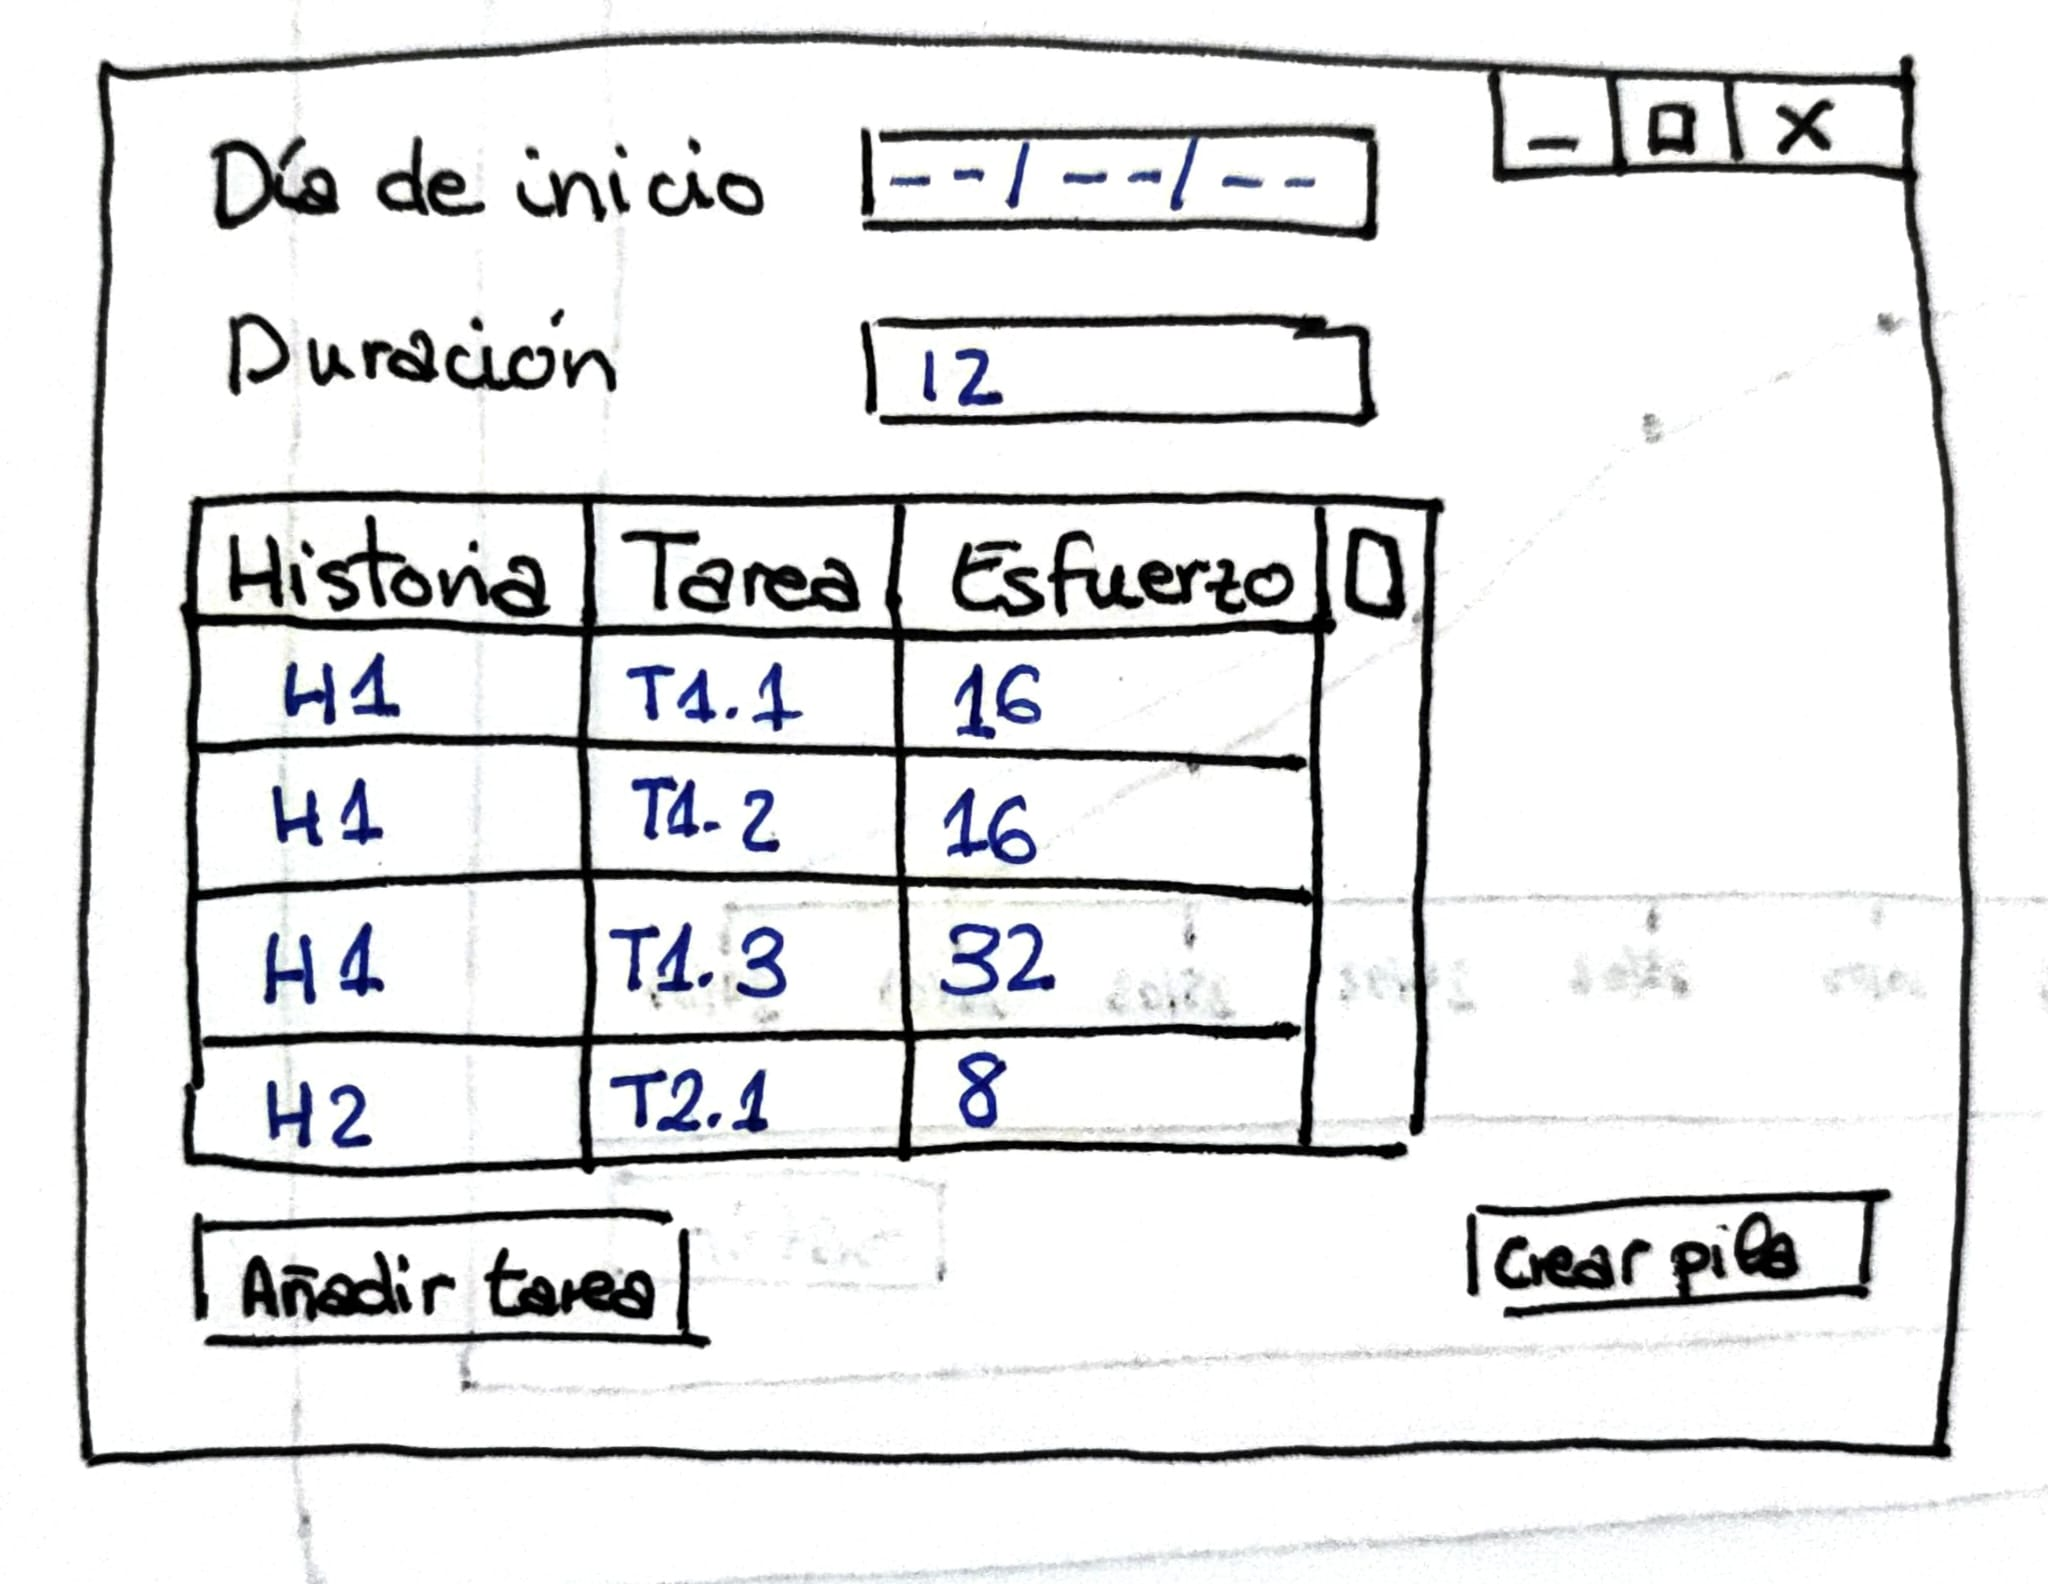 Día de inicio --/--/--
Duración 12
Historia Tarea Esfuerzo
H1 T1.1 16
H1 T1.2 16
H1 T1.3 32
H2 T2.1 8
Añadir tarea Crear pila